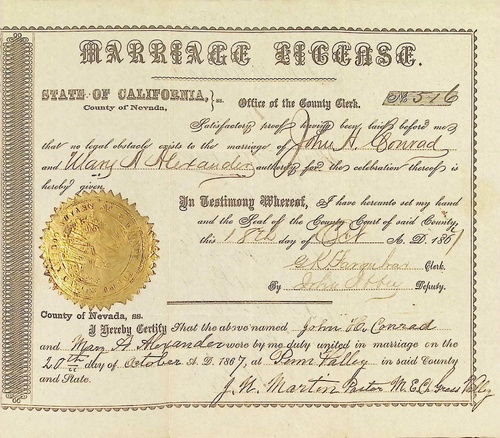 MARRIAGE LICENSE.
STATE OF CALIFORNIA, } ss. Office of the County Clerk. No. 516
County of Nevada,
Satisfactory proof having been laid before me
that no legal obstacle exists to the marriage of John H. Conrad
and Mary A Alexander authority for the celebration thereof is
hereby given.
In Testimony Whereof, I have hereunto set my hand
and the Seal of the County Court of said County,
this 18th day of Oct A. D. 1867
Clerk.
By Deputy.
County of Nevada, ss.
I Hereby Certify That the above named John H. Conrad
and Mary A Alexander were by me duly united in marriage on the
20th day of October A. D. 1867, at Penn Valley in said County
and State.
J. N. Martin Pastor M. E. C. Grass Valley